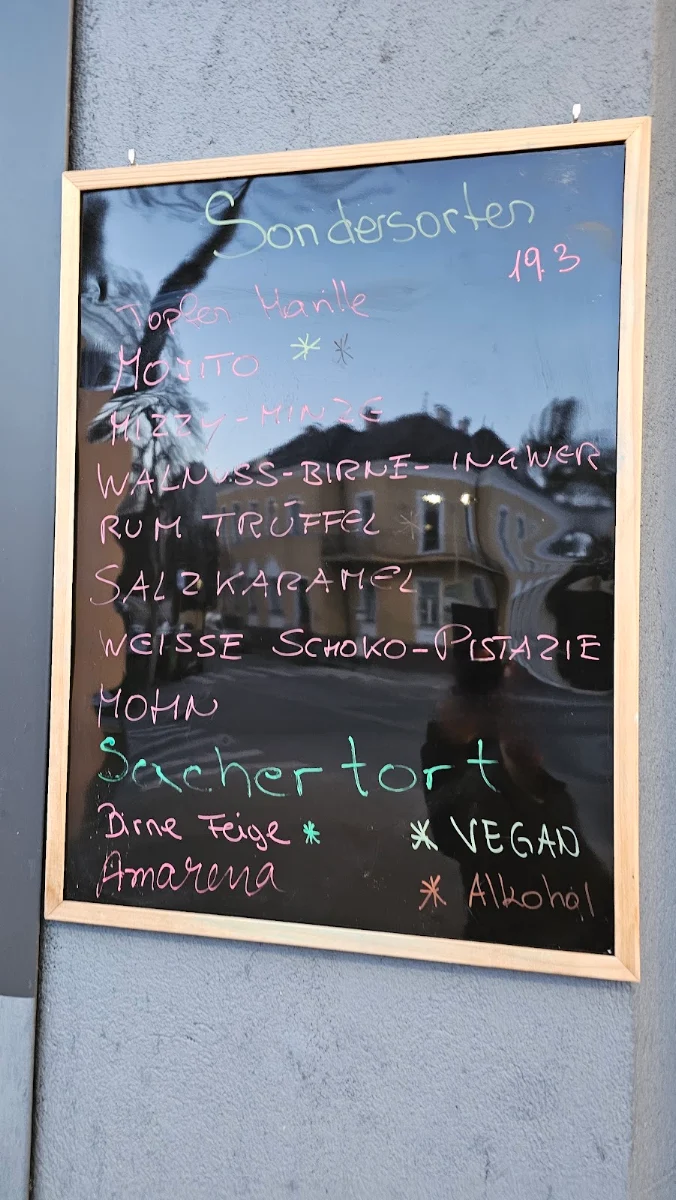 Sondersorten
19.3
Topfen Marille
MOJITO * *
MIZZY-MINZE
WALNUSS-BIRNE-INGWER
RUM TRÜFFEL *
SALZKARAMEL
WEISSE SCHOKO-PISTAZIE
MOHN
Sachertort
Birne Feige *
* VEGAN
Amarena
* Alkohol